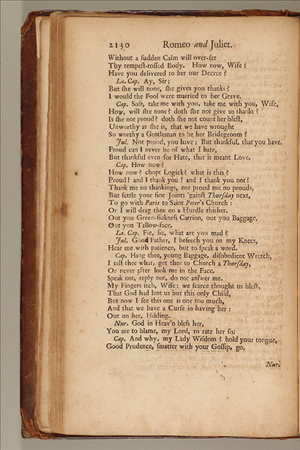 2130 Romeo and Juliet.
Without a sudden Calm will over-set
Thy tempest-tossed Body. How now, Wife?
Have you delivered to her our Decree?
La. Cap. Ay, Sir;
But she will none, she gives you thanks?
I would the Fool were married to her Grave.
Cap. Soft, take me with you, take me with you, Wife,
How, will she none? doth she not give us thanks?
Is she not proud? doth she not count her blest,
Unworthy as she is, that we have wrought
So worthy a Gentleman to be her Bridegroom?
Jul. Not proud, you have; But thankful, that you have.
Proud can I never be of what I hate,
But thankful even for Hate, that is meant Love.
Cap. How now?
How now? chopt Logick? what is this?
Proud? and I thank you? and I thank you not?
Thank me no thankings, nor proud me no prouds,
But settle your fine Joints 'gainst Thursday next,
To go with Paris to Saint Peter's Church:
Or I will drag thee on a Hurdle thither.
Out you Green-sickness Carrion, out you Baggage,
Out you Tallow-face.
La. Cap. Fie, fie, what are you mad?
Jul. Good Father, I beseech you on my Knees,
Hear me with patience, but to speak a word.
Cap. Hang thee, young Baggage, disobedient Wretch,
I tell thee what, get thee to Church a Thursday,
Or never after look me in the Face.
Speak not, reply not, do not answer me.
My Fingers itch, Wife: we scarce thought us blest,
That God had lent us but this only Child,
But now I see this one is one too much,
And that we have a Curse in having her:
Out on her, Hilding.
Nur. God in Heav'n bless her,
You are to blame, my Lord, to rate her so:
Cap. And why, my Lady Wisdom? hold your tongue,
Good Prudence, smatter with your Gossip, go.
Nur.